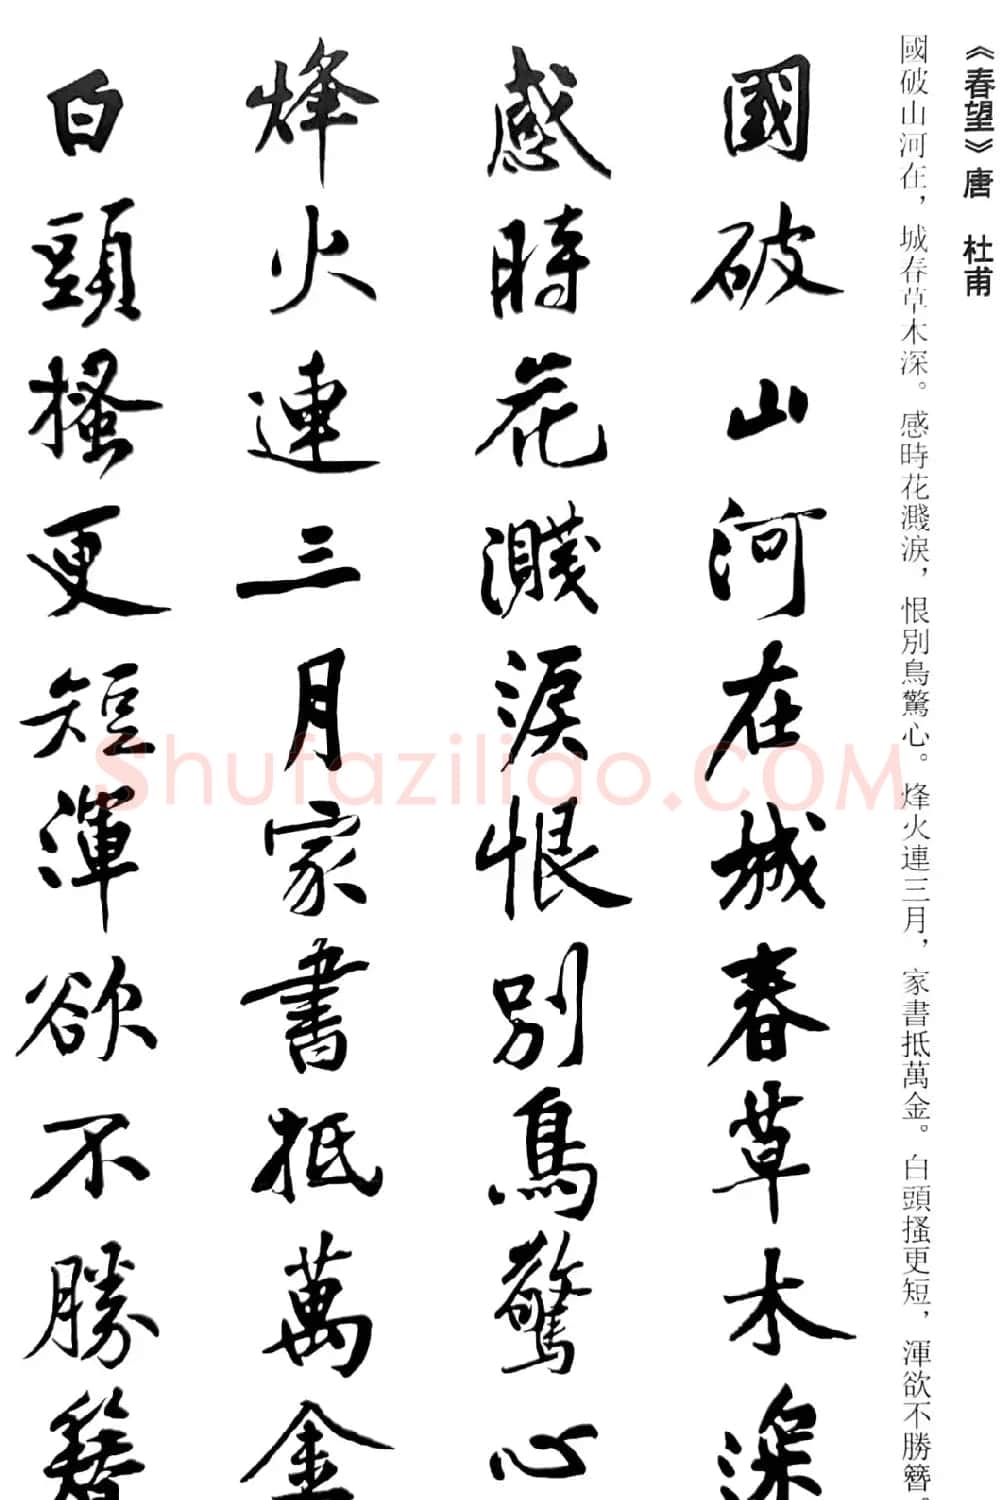 《春望》唐 杜甫
國破山河在，城春草木深。感時花濺淚，恨別鳥驚心。烽火連三月，家書抵萬金。白頭搔更短，渾欲不勝簪。
國破山河在城春草木深
感時花濺淚恨別鳥驚心
烽火連三月家書抵萬金
白頭搔更短渾欲不勝簪
Shufaziliao.COM